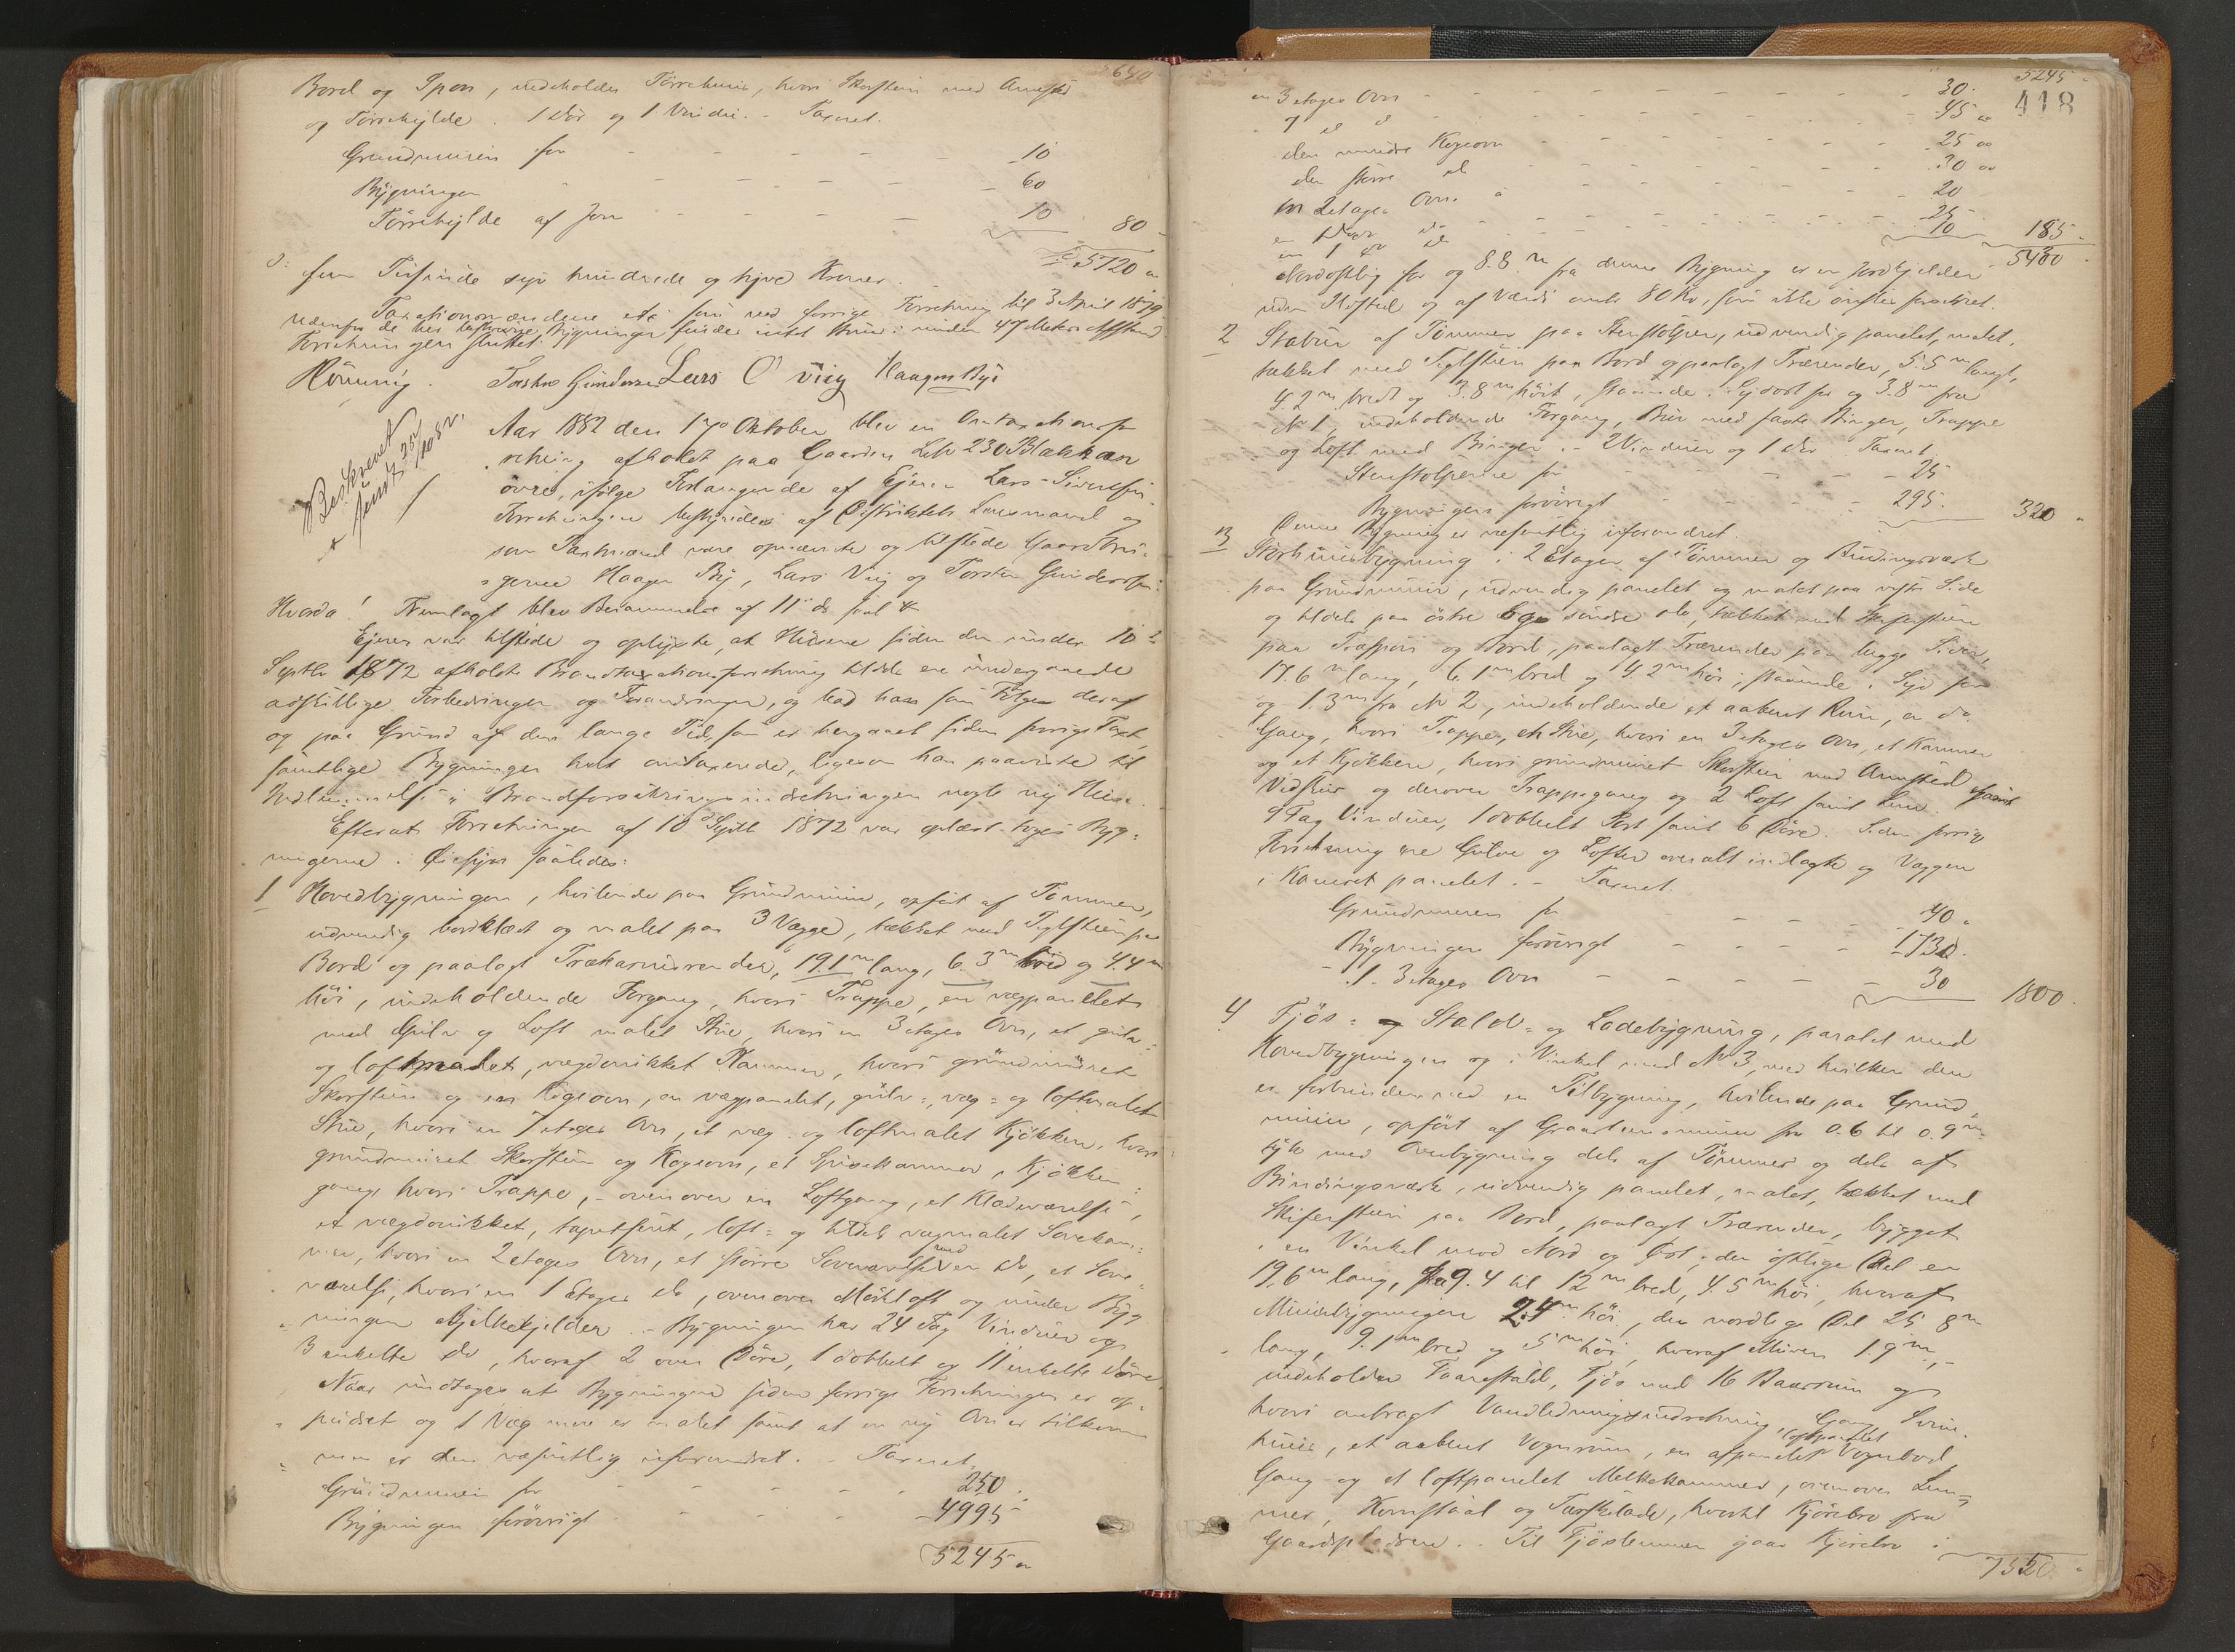 Bord og Spon, indeholder Tørrehuus, hvori Skorsteen med Arnested
og Tørrehylde. 1 Dør og 1 Vindu. - Taxeret.
Grundmuren for - - - - 10
Bygningen - - - - 60
Tørrehylde af Jern - - - 10 80
5720
fem Tusinde syv hundrede og tyve Kroner.
Taxationsmændene etc som ved forrige Forretning til 3 April 1879.
Udenfor de her beskrevne Bygninger findes intet Huus i under 47 Meters Afstand.
Forretningen sluttet.
Rönning. Torsten Gundersen Lars O Viig Haagen Bye
Beskrevet
sendt 25/10 82.
Aar 1882 den 17de Oktober blev en Omtaxationsfor
retning afholdt paa Gaarden Løb 230 Blakkan
øvre, ifølge Forlangende af Ejeren Lars Sivertsen
Forretningen bestyredes af Distriktets Lensmand og
som Taxtmænd vare opnævnte og tilstede Gaardbru-
gerne Haagen By, Lars Viig og Torsten Gundersen.
Hvorda! Fremlagt blev Berammelse af 11 ds saal.
Ejeren var tilstede og oplyste, at Husene siden den under 10de
Septbr 1872 afholdte Brandtaxationsforretning tildels ere undergaaede
adskillige Forbedringer og Forandringer, og bad han som Følge deraf
og paa Grund af den lange Tid, som er hengaaet siden forrige Taxt,
samtlige Bygninger helt omtaxerede, ligesom han paaviste til
Indlemmelse i Brandforsikringsindretningen nogle ny Huse.
Efterat Forretningen af 10d Septb 1872 var oplæst toges Byg-
ningerne i Øiesyn saaledes:
1 Hovedbygningen, hvilende paa Grundmuur, opført af Tømmer,
udvendig bordklædt og malet paa 3 Vægge, tækket med Teglsteen paa
Bord og paalagt Trækarnisrender, 19.1 m lang, 6.3 m bred og 4.4 m
høi, indeholdende Forgang, hvori Trappe, en vægpanelet
med Gulv og Loft malet Stue, hvori en 3 etages Ovn, et gulv-
og loftmalet, vægdonikket Kammer, hvori grundmuret
Skorsteen og en Kogeovn, en vægpanelet, gulv-, væg- og loftmalet
Stue, hvori en 7 etages Ovn, et væg- og loftmalet Kjøkken, hvori
grundmuret Skorsteen og Kogeovn, et Spisekammer, Kjøkken-
gang, hvori Trappe, - ovenover en Loftgang, et Klædeværelse,
et vægdonikket, tapetseret, loft- og tildels vægmalet Sovekam-
mer, hvori en 2 etages Ovn, et større Soveværelse med en do, et Sove-
værelse, hvori en 1 Etages do, ovenover Mørkloft og under Byg-
ningen Mjelkekjelder. - Bygningen har 24 Fag Vinduer og
3 enkelte do, hvoraf 2 over Døre, 1 dobbelt og 11 enkelte Døre.
Naar undtages at Bygningen siden forrige Forretningen er op-
pudset og 1 Væg mere er malet samt at en ny Ovn er tilkom-
men er den væsentlig uforandret. - Taxeret.
Grundmuren for - - - - 250
Bygningen forøvrigt - - - - 4995
5245
5245
418
en 3 etages Ovn - - - - 30
" 7 d d - - - - 45
den mindre Kogeovn - - - - 25
den større d - - - - 30
en 2 etages Ovn - - - - 20
25
en 1 do do - - - - 10 185
5430
Nordostlig for og 8.8 m fra denne Bygning er en Jordkjelder
uden Ildsted og af Værdi omtr 80 Kr, som ikke ønskes forsikret.
2 Stabur af Tømmer paa Steenstolper, udvendig panelet, malet,
tækket med Teglsteen paa Bord og paalagt Trærender, 5.5 m langt,
4.2 m bredt og 3.8 m høit, staaende i Sydost for og 3.8 m fra
N 1, indeholdende Forgang, Bur med faste Binger, Trappe
og Loft med Binger. - 2 Vinduer og 1 Dør. Taxeret.
Steenstolperne for - - - - 25
Bygningen forøvrigt - - - - 295. 320
Denne Bygning er væsentlig uforandret.
3 Størhuusbygning i 2 Etager af Tømmer og Bindingsværk
paa Grundmuur, udvendig panelet og malet paa vestre Side
og tildels paa østre og søndre do, tækket med Skifersteen
paa Træspon og Bord, paalagt Trærender paa begge Sider,
17.6 m lang, 6.1 m bred og 4.2 m høi, staaende i Syd for
og 1.3 m fra N 2, indeholdende et aabent Rum, en do
Gang, hvori Trappe, en Stue, hvori en 3 etages Ovn, et Kammer
og et Kjøkken, hvori grundmuret Skorsteen med Arnested samt
Vedskur og derover Trappegang og 2 Loft samt Lem.
9 Fag Vinduer, 1 dobbelt Port samt 6 Døre. Siden forrige
Forretning ere Gulve og Lofter overalt indlagte og Væggen
i Kammeret panelet. - Taxeret.
Grundmuren for - - - - 40
Bygningen forøvrigt - - - - 1730.
1 - 3 etages Ovn - - - - 30 1800.
4 Fjøs- og Stald- og Ladebygning, paralel med
Hovedbygningen og i Vinkel med N 3, med hvilken den
er forbunden med en Tilbygning, hvilende paa Grund-
muur, opført af Graasteensmuur fra 0.6 til 0.9 m
tyk med Overbygning dels af Tømmer og dels af
Bindingsværk, udvendig panelet, malet, tækket med
Skifersteen paa Bord, paalagt Trærender, bygget
i en Vinkel mod Nord og Øst; den østlige Del er
19.6 m lang, fra 9.4 til 12 m bred, 4.5 m høi, hvoraf
Muurbygningen 2.4 m høi, den nordlige Del 25.8 m
lang, 9.1 m bred og 5 m høi, hvoraf Muren 1.9 m, -
indeholder Faarestald, Fjøs med 16 Baasrum og
hvori anbragt Vandledningsindretning, Gang, Sviin-
huus, et aabent Vognrum, en afpanelet loftpanelet Vognbod
Gang og et loftpanelet Melkekammer, ovenover Lem-
mer, Kornstaal og Tærskelade, hvortil Kjørebro fra
Gaardspladsen. - Til Fjøslemmen gaar Kjørebro i
7550